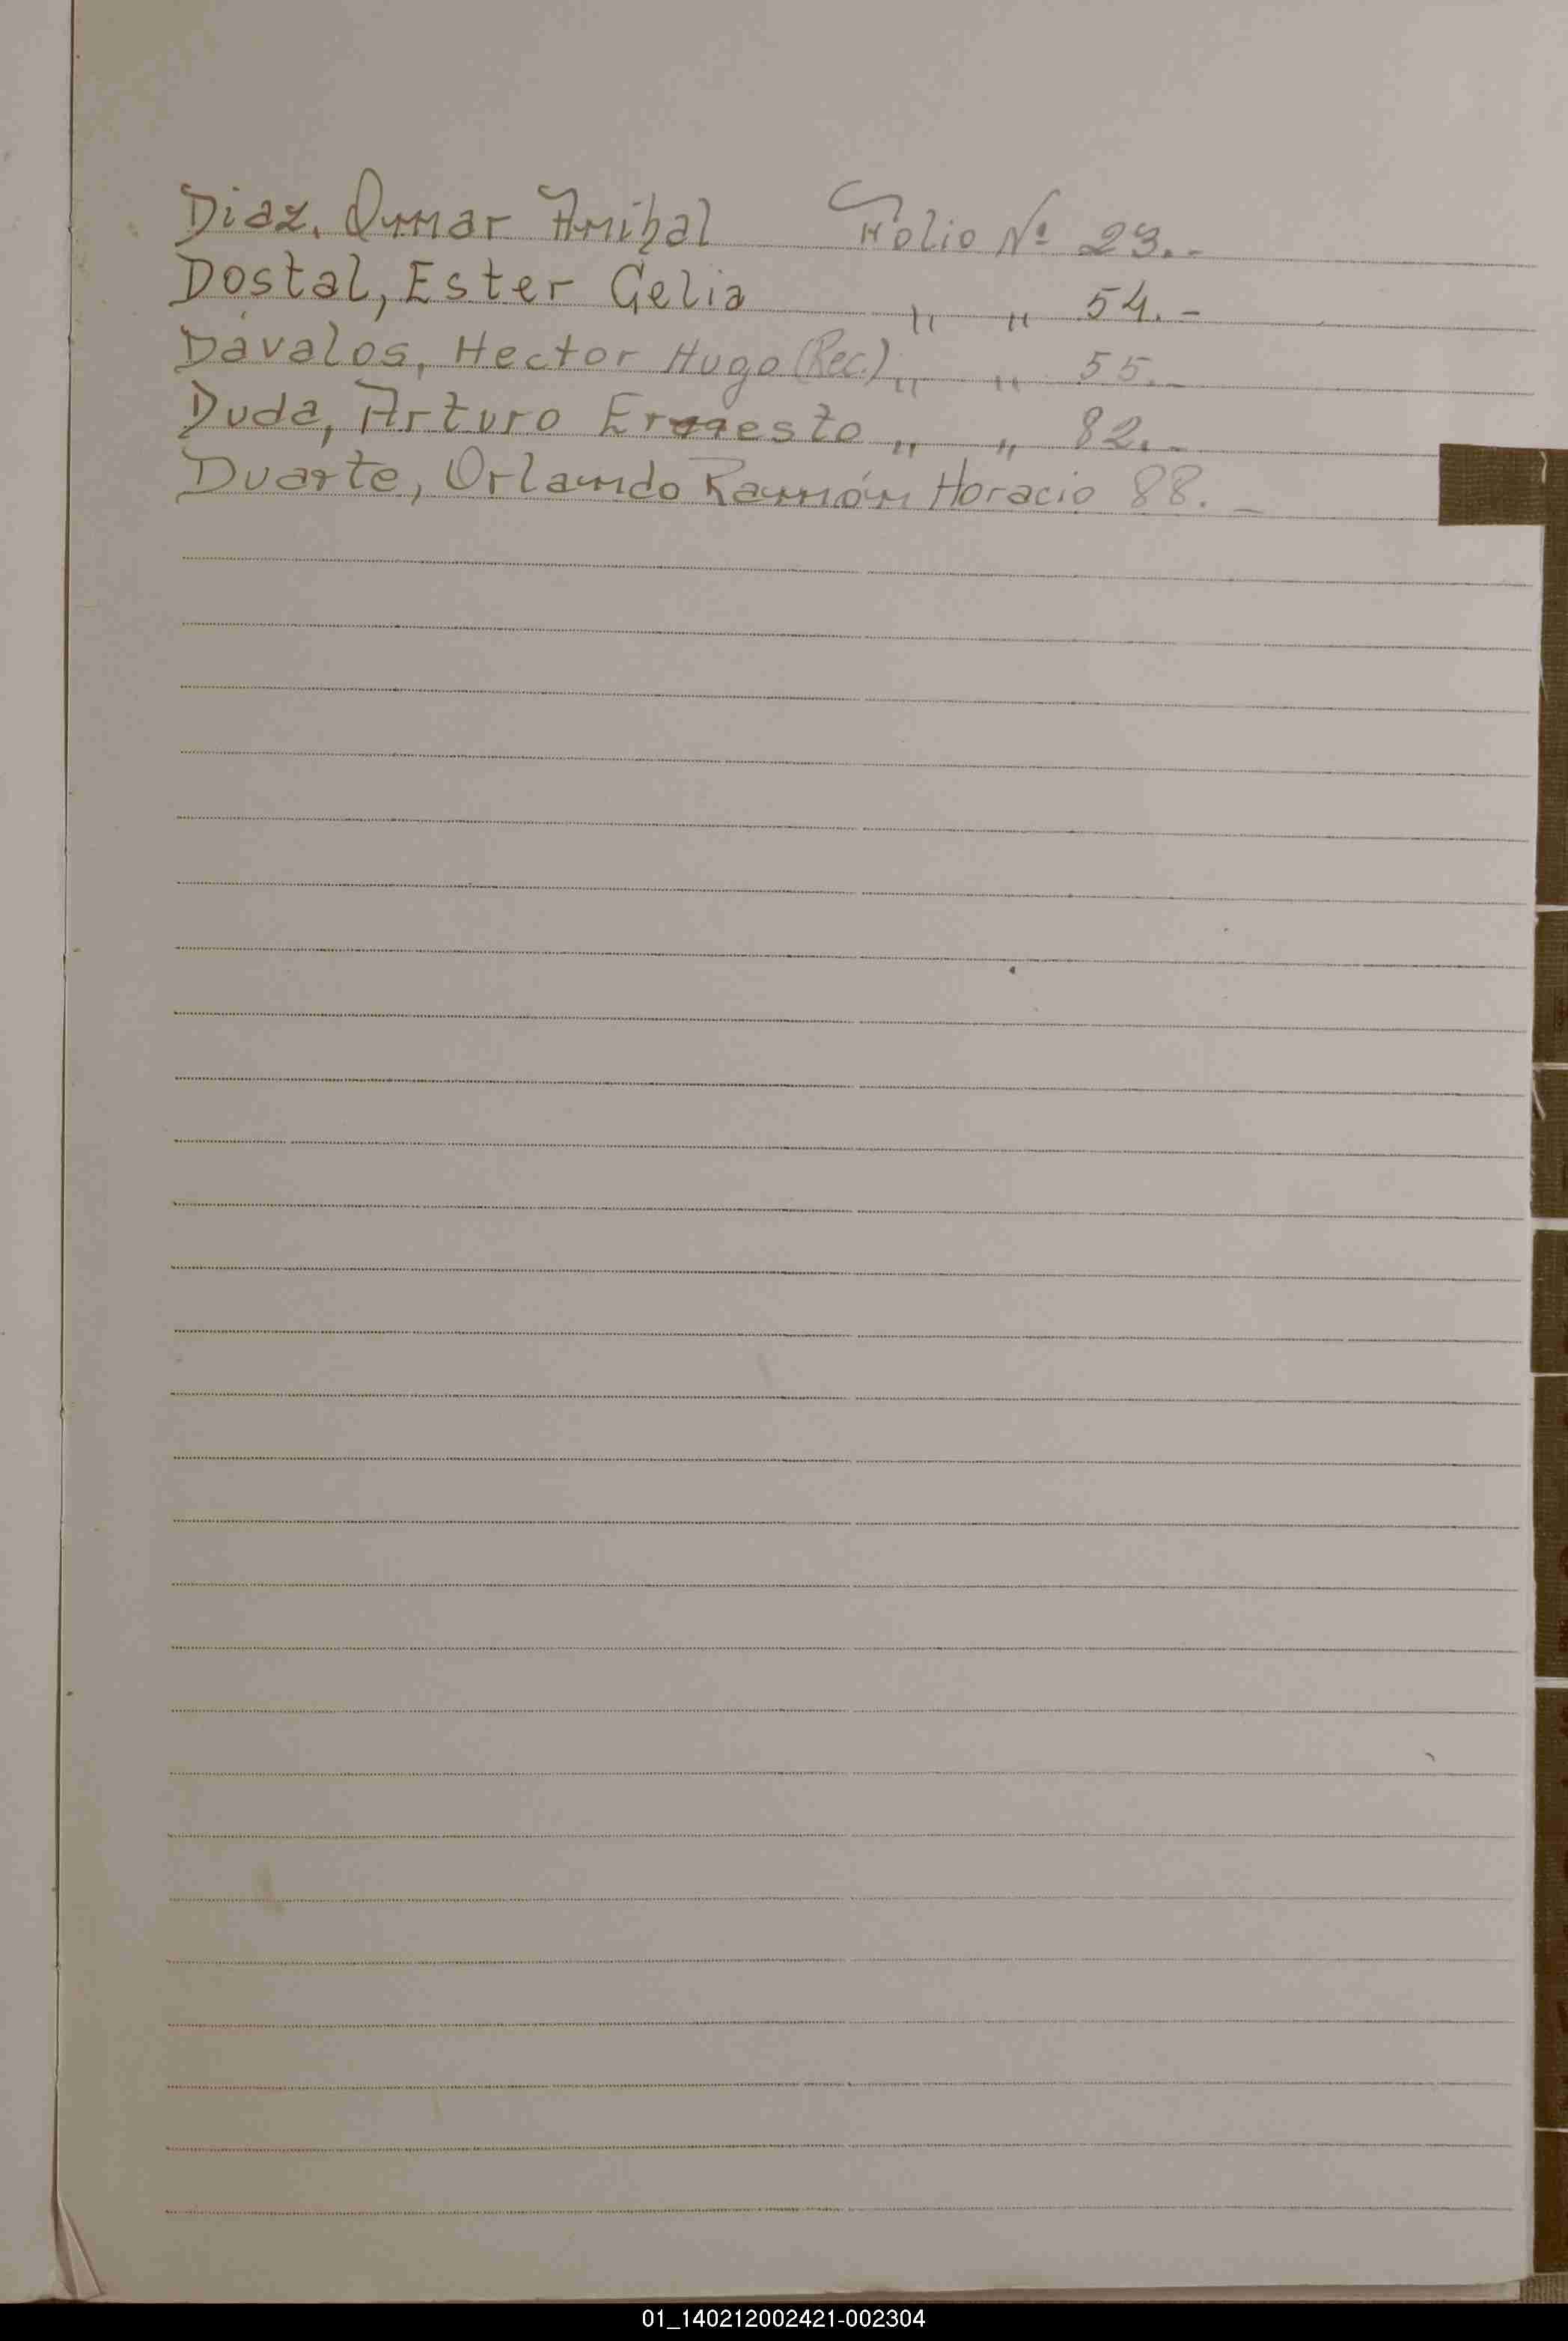 Diaz, Omar Anibal Folio Nº 23.-
Dostal, Ester Celia " " 54.-
Dávalos, Hector Hugo (Rec.) " " 55.-
Duda, Arturo Ernesto " " 82.-
Duarte, Orlando Ramón Horacio 88.-
01_140212002421-002304